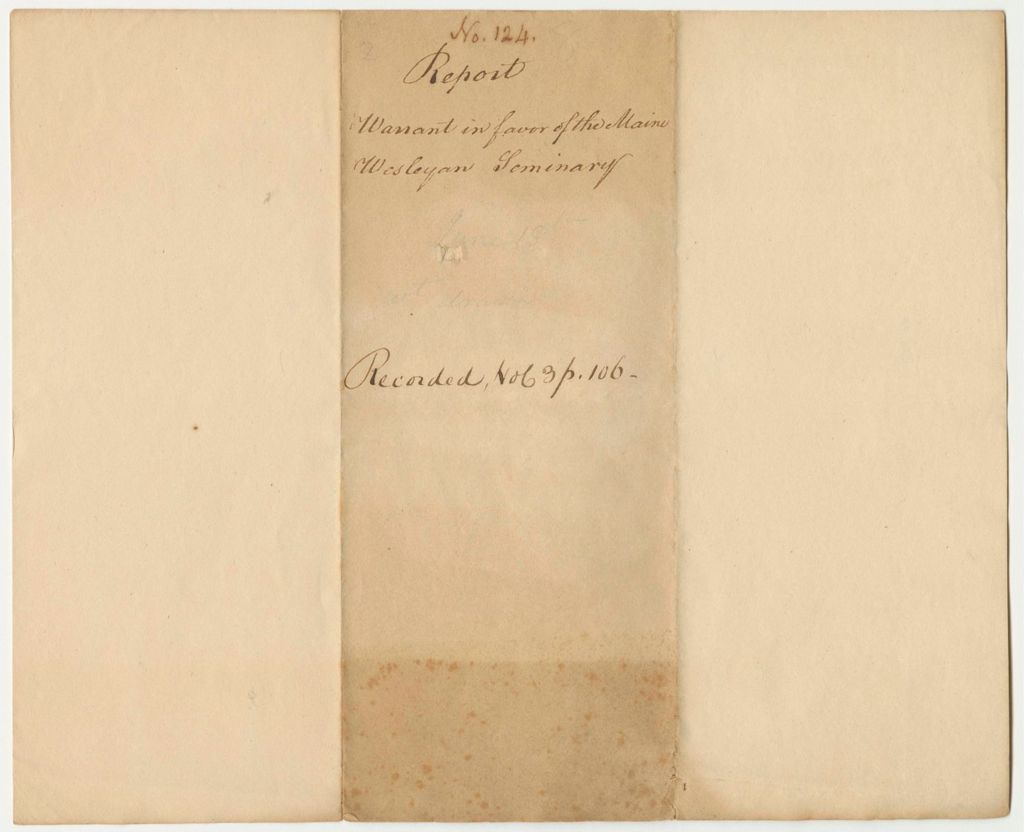 No. 124.
Report
Warrant in favor of the Maine
Wesleyan Seminary
June 18
drawn
Recorded, Vol 3 p. 106-